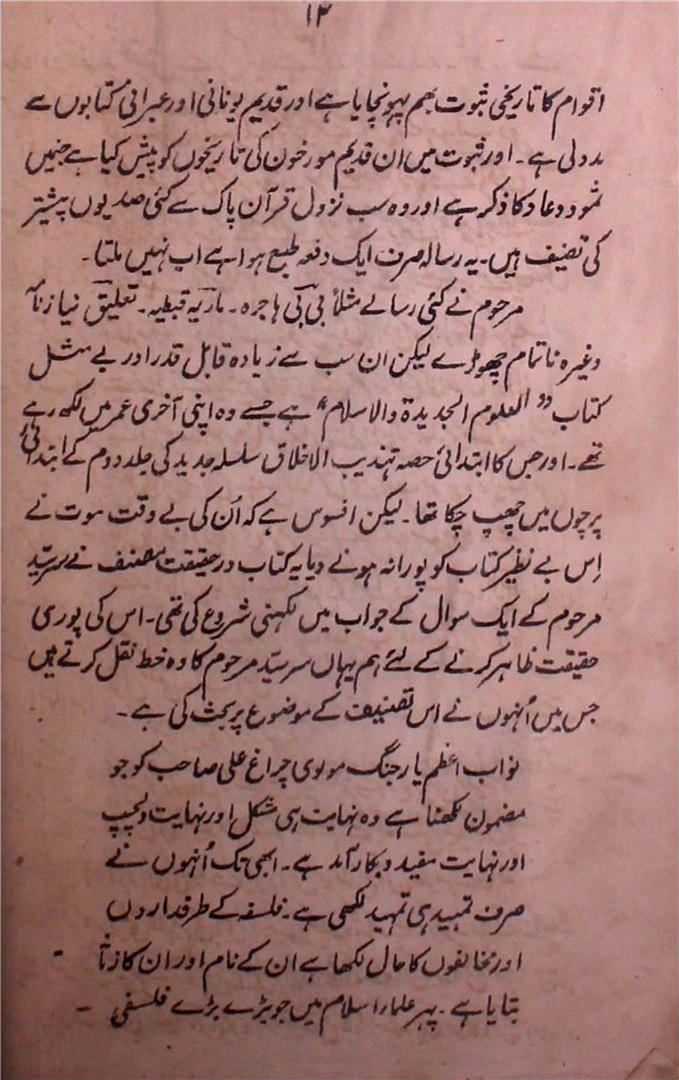 ۱۲
اقوام کا تاریخی ثبوت بھم پہونچایا ہے اور قدیم یونانی اور عبرانی کتابوں سے
مدد لی ہے۔ اور ثبوت میں ان قدیم مورخون کی تاریخوں کو پیش کیا ہے جنہیں
ثمود و عاد کا ذکر ہے اور وہ سب نزول قرآن پاک سے کئی صدیوں پیشتر
کی تصنیف ہیں۔ یہ رسالہ صرف ایک دفعہ طبع ہوا ہے اب نہیں ملتا۔
مرحوم نے کئی رسالے مثلاً بی بی ہاجرہ۔ ماریہ قبطیہ۔ تعلیق نیاز نامہ
وغیرہ ناتمام چھوڑے لیکن ان سب سے زیادہ قابل قدر اور بے مثل
کتاب ”العلوم الجدیدۃ والاسلام“ ہے جسے وہ اپنی آخری عمر میں لکھ رہے
تھے۔ اور جس کا ابتدائی حصہ تہذیب الاخلاق سلسلہ جدید کی جلد دوم کے ابتدائی
پرچوں میں چھپ چکا تھا۔ لیکن افسوس ہے کہ اُن کی بے وقت موت نے
اِس بے نظیر کتاب کو پورا نہ ہونے دیا یہ کتاب درحقیقت مصنف نے سرسیّد
مرحوم کے ایک سوال کے جواب میں لکہنی شروع کی تھی۔ اس کی پوری
حقیقت ظاہر کرنے کے لئے ہم یہاں سرسیّد مرحوم کا وہ خط نقل کرتے ہیں
جس میں اُنہوں نے اس تصنیف کے موضوع پر بحث کی ہے۔
نواب اعظم یار جنگ مولوی چراغ علی صاحب کو جو
مضمون لکھنا ہے وہ نہایت ہی مشکل اور نہایت دلچپ
اور نہایت مفید و بکار آمد ہے۔ ابھی تک اُنہوں نے
صرف تمہید ہی تمہید لکھی ہے۔ فلسفہ کے طرفداروں
اور مخالفوں کا حال لکھا ہے ان کے نام اور ان کا زمانہ
بتایا ہے۔ پہر علماء اسلام میں جو بڑے بڑے فلسفی